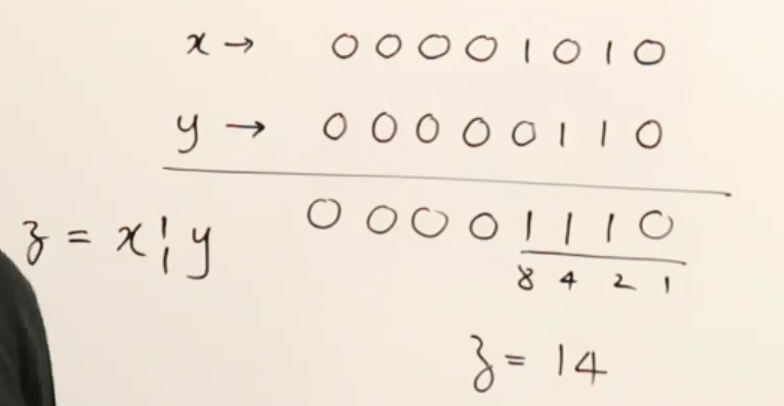 x → 0 0 0 0 1 0 1 0
y → 0 0 0 0 0 1 1 0
z = x ¦ y 0 0 0 0 1 1 1 0
8 4 2 1
z = 14